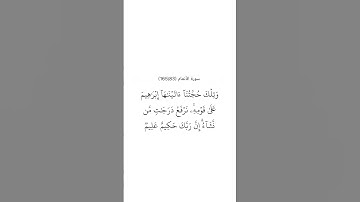 سورة الانعام (83)(165)
وَتِلْكَ حُجَّتُنَآ ءَاتَيْنَٰهَآ إِبْرَٰهِيمَ
عَلَىٰ قَوْمِهِۦ ۚ نَرْفَعُ دَرَجَٰتٍ مَّن
نَّشَآءُ ۗ إِنَّ رَبَّكَ حَكِيمٌ عَلِيمٌ